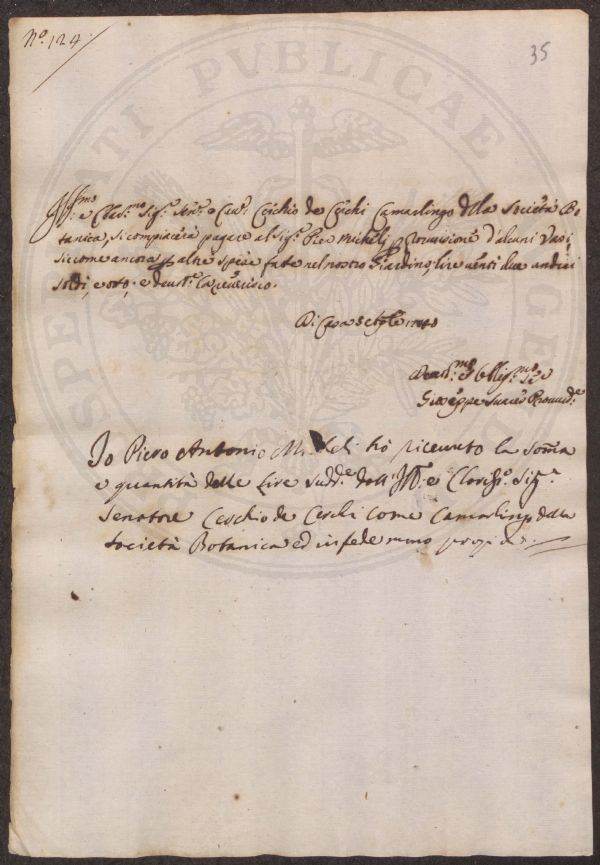 N.º 124.
35
Ill.mo e Clar.mo Sig.r Sen.re e Cav.re Cerchio de Cerchi Camarlingo della Società Bo-
tanica, si compiacerà pagare al Sig.r Pier Micheli p Provvisione d'alcuni Vasi,
siccome ancora p altre spese fatte nel nostro Giardino, lire venti due undici
soldi, e otto, e
Di Casa
Giuseppe Provvid.e
Io Piero Antonio Micheli hò riceuuto la somma
e quantità delle Lire Sudd.e dall' Ill.mo e Clariss.o Sig.r
Senatore Cerchio de Cerchi come Camarlingo della
Società Botanica ed in fede mano propia
CI PVBLICAE